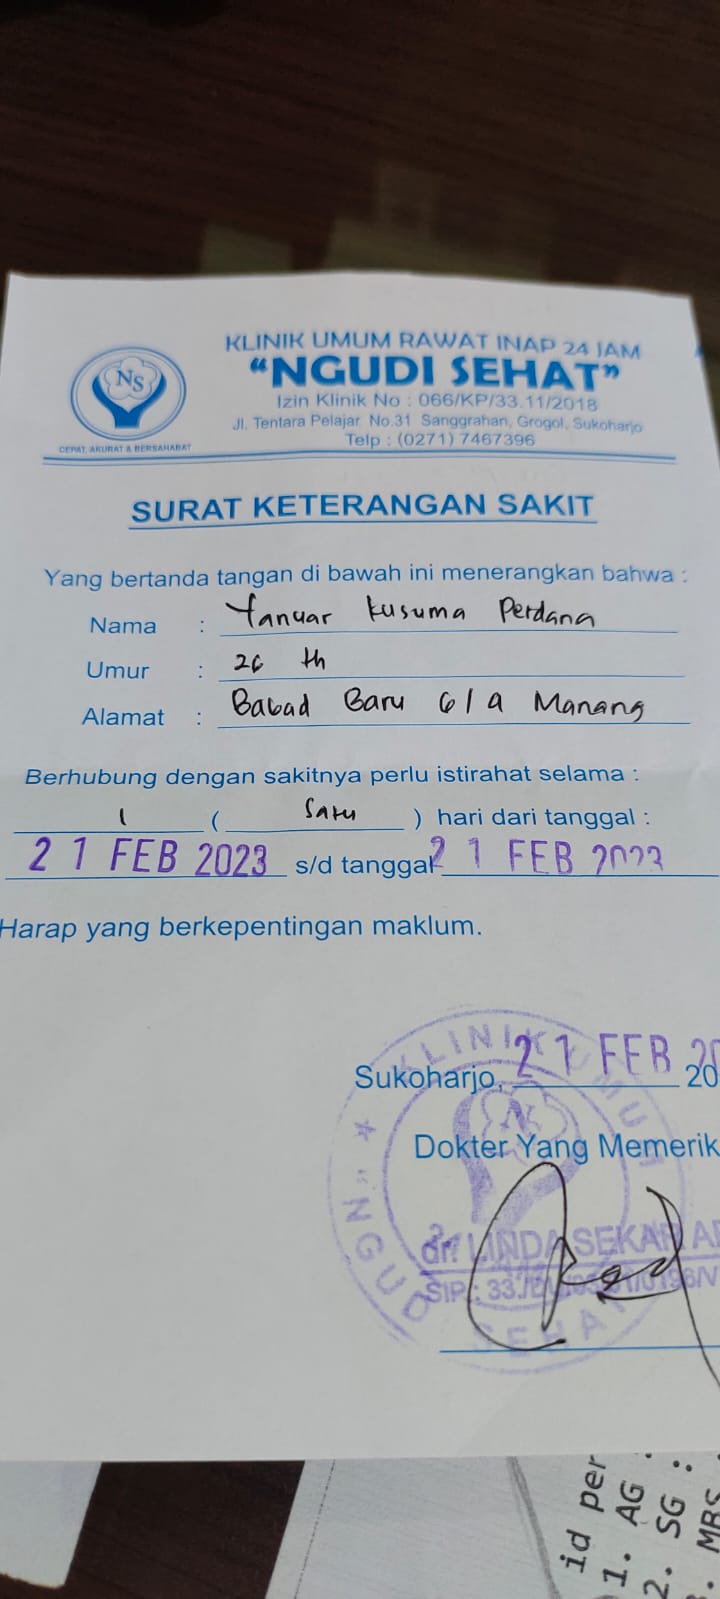 KLINIK UMUM RAWAT INAP 24 JAM
"NGUDI SEHAT"
Izin Klinik No : 066/KP/33.11/2018
Jl. Tentara Pelajar No.31 Sanggrahan, Grogol, Sukoharjo
Telp : (0271) 7467396
NS
CEPAT, AKURAT & BERSAHABAT
SURAT KETERANGAN SAKIT
Yang bertanda tangan di bawah ini menerangkan bahwa :
Nama : Yanuar Kusuma Perdana
Umur : 26 th
Alamat : Babad Baru 6/9 Manang
Berhubung dengan sakitnya perlu istirahat selama :
1 ( Satu ) hari dari tanggal :
21 FEB 2023 s/d tanggal 21 FEB 2023
Harap yang berkepentingan maklum.
Sukoharjo, 21 FEB 20
Dokter Yang Memerik
KLINIK UMUM
"NGUDI SEHAT
dr. LINDA SEKAR
SIP : 33.
id per
1. AG :
2. SG :
. MBS